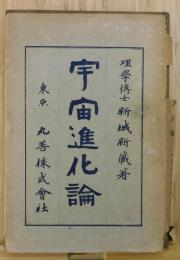 理學博士 新城新藏著
宇宙進化論
東京 丸善株式會社